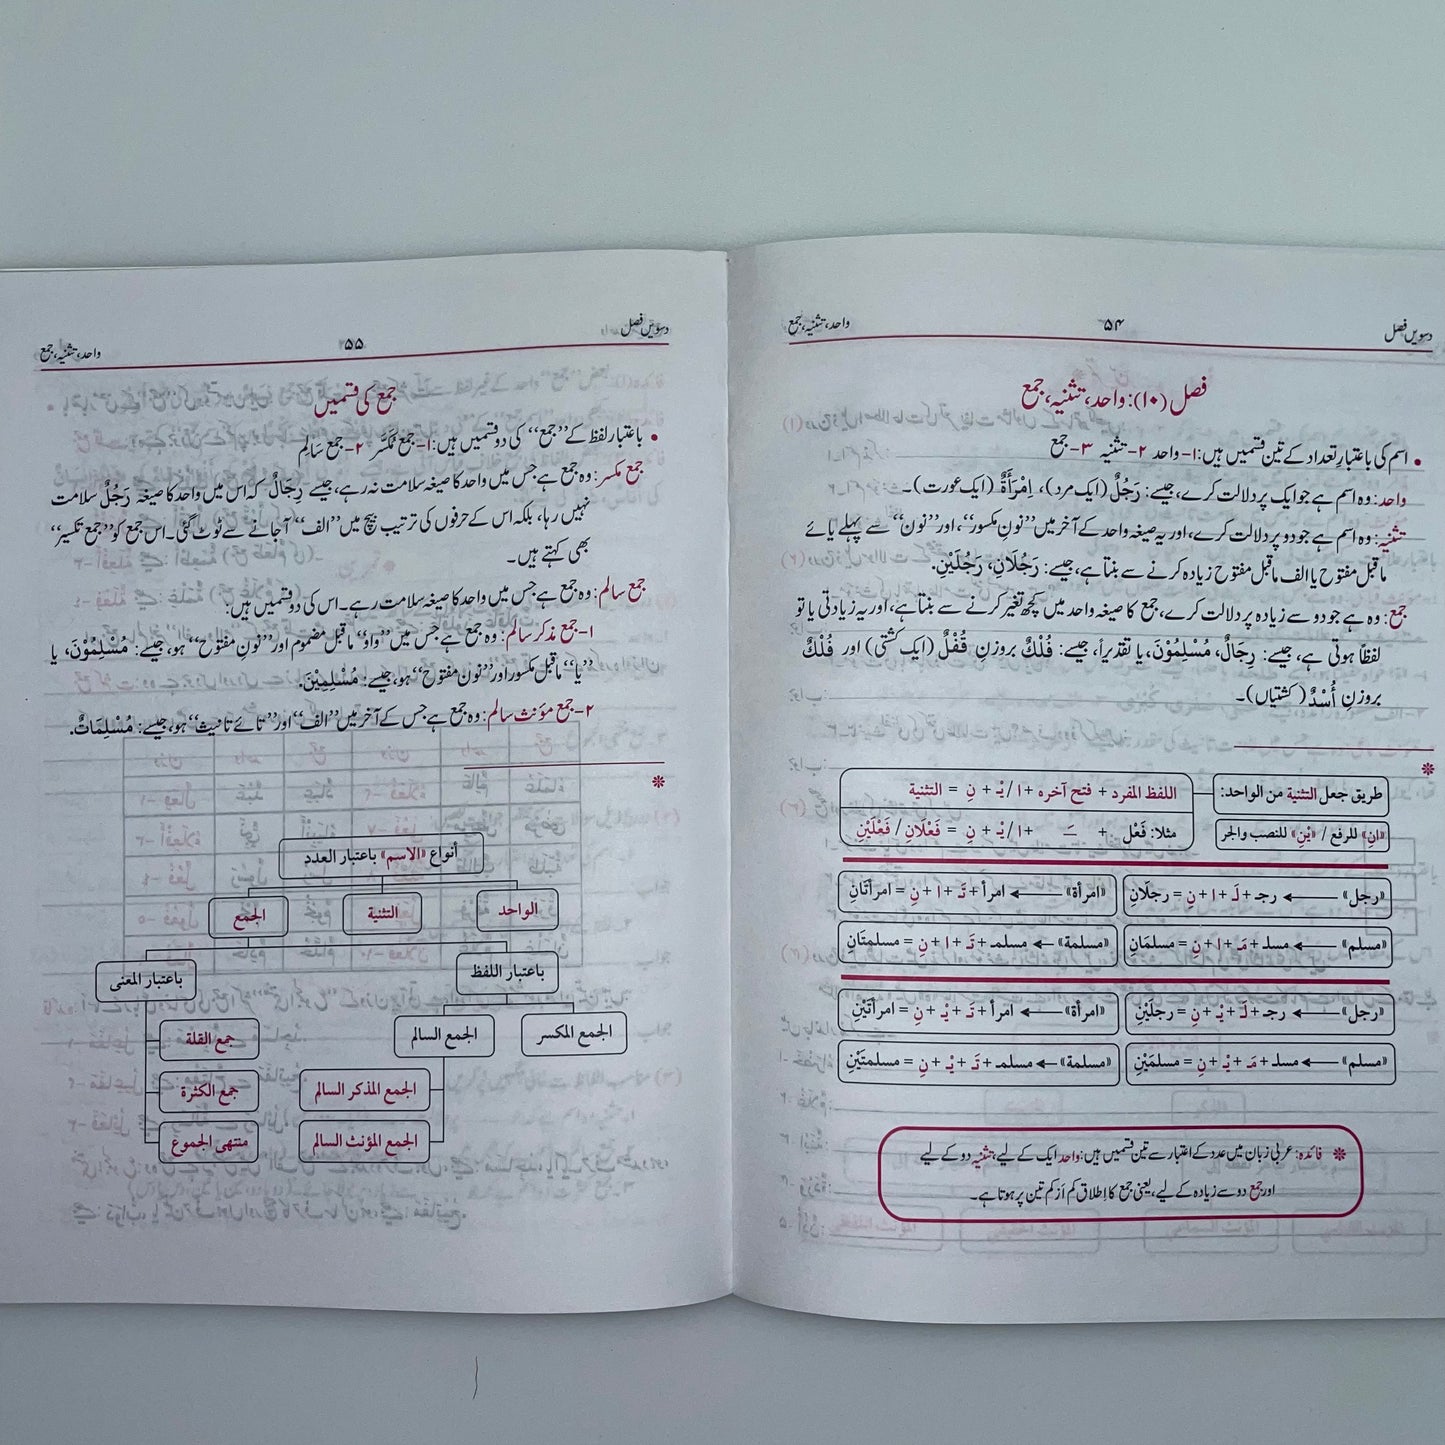 دسویں فصل
۵۴
واحد، تثنیہ، جمع
فصل (۱۰): واحد، تثنیہ، جمع
• اسم کی باعتبارِ تعداد کے تین قسمیں ہیں: ۱- واحد ۲- تثنیہ ۳- جمع
واحد: وہ اسم ہے جو ایک پر دلالت کرے، جیسے: رَجُلٌ (ایک مرد)، اِمْرَأَةٌ (ایک عورت)۔
تثنیہ: وہ اسم ہے جو دو پر دلالت کرے، اور یہ صیغہ واحد کے آخر میں ’’نونِ مکسور‘‘، اور ’’نون‘‘ سے پہلے یائے
ماقبل مفتوح یا الف ماقبل مفتوح زیادہ کرنے سے بنتا ہے، جیسے: رَجُلَانِ، رَجُلَيْنِ.
جمع: وہ ہے جو دو سے زیادہ پر دلالت کرے، جمع کا صیغہ واحد میں کچھ تغیر کرنے سے بنتا ہے، اور یہ زیادتی یا تو
لفظاً ہوتی ہے، جیسے: رِجَالٌ، مُسْلِمُوْنَ، یا تقدیراً، جیسے: فُلْكٌ بروزنِ قُفْلٌ (ایک کشتی) اور فُلْكٌ
بروزنِ أُسْدٌ (کشتیاں)۔
طريق جعل التثنية من الواحد:
اللفظ المفرد + فتح آخره + ا / يْـ + نِ = التثنية
«انِ» للرفع / «يْنِ» للنصب والجر
مثلا: فَعْل + ـَـ + ا / يْـ + نِ = فَعْلَانِ / فَعْلَيْنِ
«رجل» ← رجـ + لَـ + ا + نِ = رجلَانِ
«امرأة» ← امرأ + تَـ + ا + نِ = امرأتَانِ
«مسلم» ← مسلـ + مَـ + ا + نِ = مسلمَانِ
«مسلمة» ← مسلمـ + تَـ + ا + نِ = مسلمتَانِ
«رجل» ← رجـ + لَـ + يْـ + نِ = رجلَيْنِ
«امرأة» ← امرأ + تَـ + يْـ + نِ = امرأتَيْنِ
«مسلم» ← مسلـ + مَـ + يْـ + نِ = مسلمَيْنِ
«مسلمة» ← مسلمـ + تَـ + يْـ + نِ = مسلمتَيْنِ
فائدہ: عربی زبان میں عدد کے اعتبار سے تین قسمیں ہیں: واحد ایک کے لیے، تثنیہ دو کے لیے
اور جمع دو سے زیادہ کے لیے، یعنی جمع کا اِطلاق کم اَز کم تین پر ہوتا ہے۔
دسویں فصل
۵۵
واحد، تثنیہ، جمع
جمع کی قسمیں
• باعتبار لفظ کے ’’جمع‘‘ کی دو قسمیں ہیں: ۱- جمع مُکَسَّر ۲- جمع سَالِم
جمع مکسر: وہ جمع ہے جس میں واحد کا صیغہ سلامت نہ رہے، جیسے رِجَالٌ کہ اس میں واحد کا صیغہ رَجُلٌ سلامت
نہیں رہا، بلکہ اس کے حرفوں کی ترتیب بیچ میں ’’الف‘‘ آجانے سے ٹوٹ گئی۔ اس جمع کو ’’جمع تکسیر‘‘
بھی کہتے ہیں۔
جمع سالم: وہ جمع ہے جس میں واحد کا صیغہ سلامت رہے۔ اس کی دو قسمیں ہیں:
۱- جمع مذکر سالم: وہ جمع ہے جس میں ’’واوِ‘‘ ماقبل مضموم اور ’’نونِ مفتوح‘‘ ہو، جیسے: مُسْلِمُوْنَ، یا
’’یا‘‘ ماقبل مکسور اور ’’نون مفتوح‘‘ ہو، جیسے: مُسْلِمِيْنَ.
۲- جمع مؤنث سالم: وہ جمع ہے جس کے آخر میں ’’الف‘‘ اور ’’تائے تانیث‘‘ ہو، جیسے: مُسْلِمَاتٌ.
أنواع «الاسم» باعتبار العدد
الواحد
التثنية
الجمع
باعتبار اللفظ
باعتبار المعنى
الجمع المكسر
الجمع السالم
جمع القلة
الجمع المذكر السالم
جمع الكثرة
الجمع المؤنث السالم
منتهى الجموع